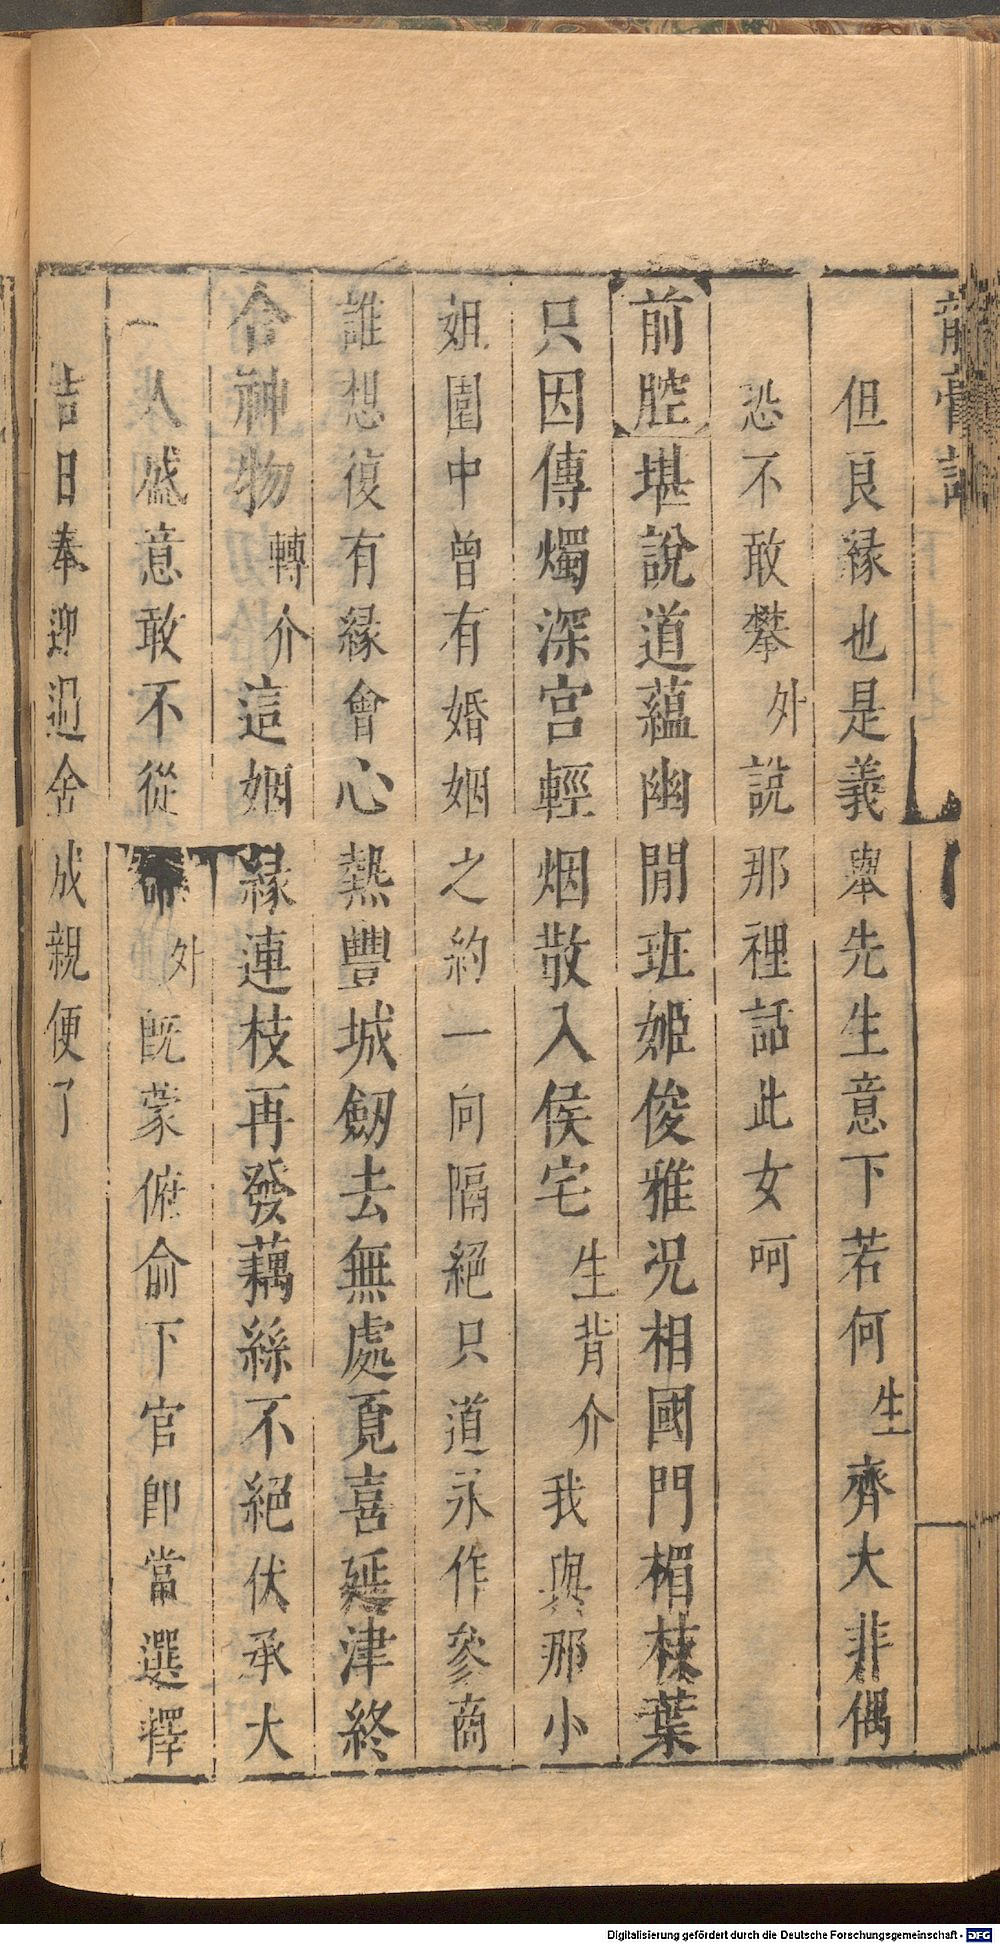 龍膏記
但良緣也是義舉先生意下若何生齊大非偶
恐不敢攀外說那裡話此女呵
前腔堪說道蘊幽閒班姬俊雅况相國門楣葉
只因傳燭深宫輕烟散入侯宅生背介我與那小
姐園中曾有婚姻之約一向隔絕只道永作參商
誰想復有緣會心熱豐城劒去無處覓喜延津終
合神物轉介這姻緣連枝再發藕絲不絕伏承大
人盛意敢不從命外旣蒙俯俞下官卽當選擇
吉日奉迎過舍成親便了
Digitalisierung gefördert durch die Deutsche Forschungsgemeinschaft - DFG